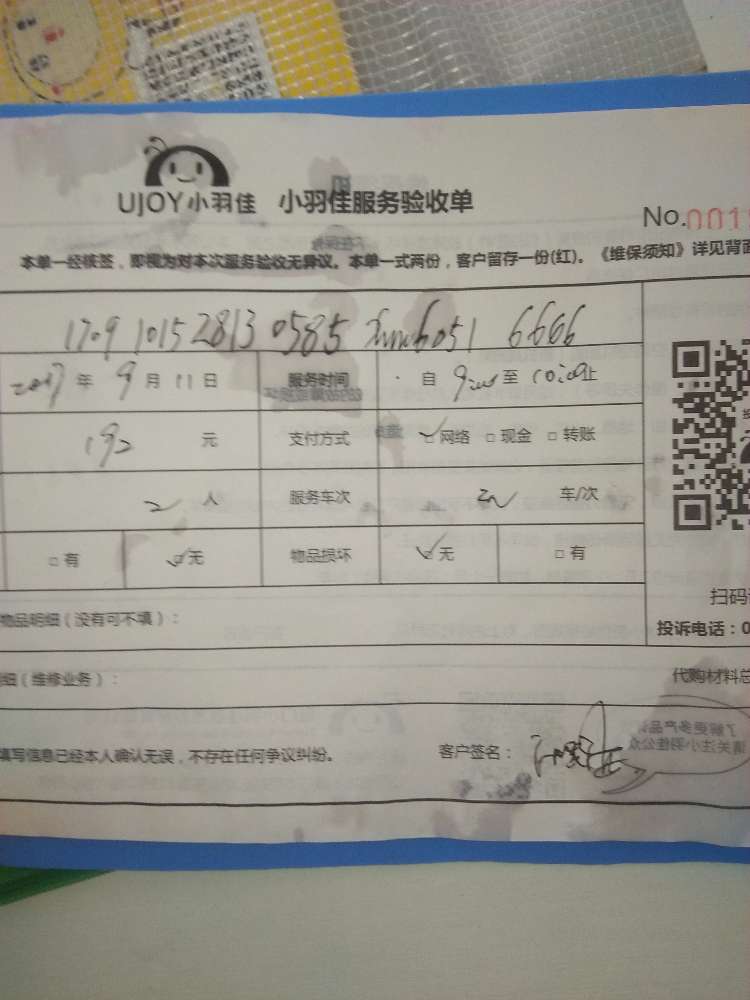 UJOY小羽佳 小羽佳服务验收单
No.001
本单一经核签，即视为对本次服务验收无异议。本单一式两份，客户留存一份(红)。《维保须知》详见背面
1709 1015 2813 0585 6051 6666
2017年 9月 11日 服务时间 自 9:00 至 10:00止
192 元 支付方式 网络 □现金 □转账
2 人 服务车次 车/次
□有 □无 物品损坏 无 □有
扫码
物品明细（没有可不填）：
投诉电话：0
细（维修业务）：
代购材料总
填写信息已经本人确认无误，不存在任何争议纠纷。 客户签名：